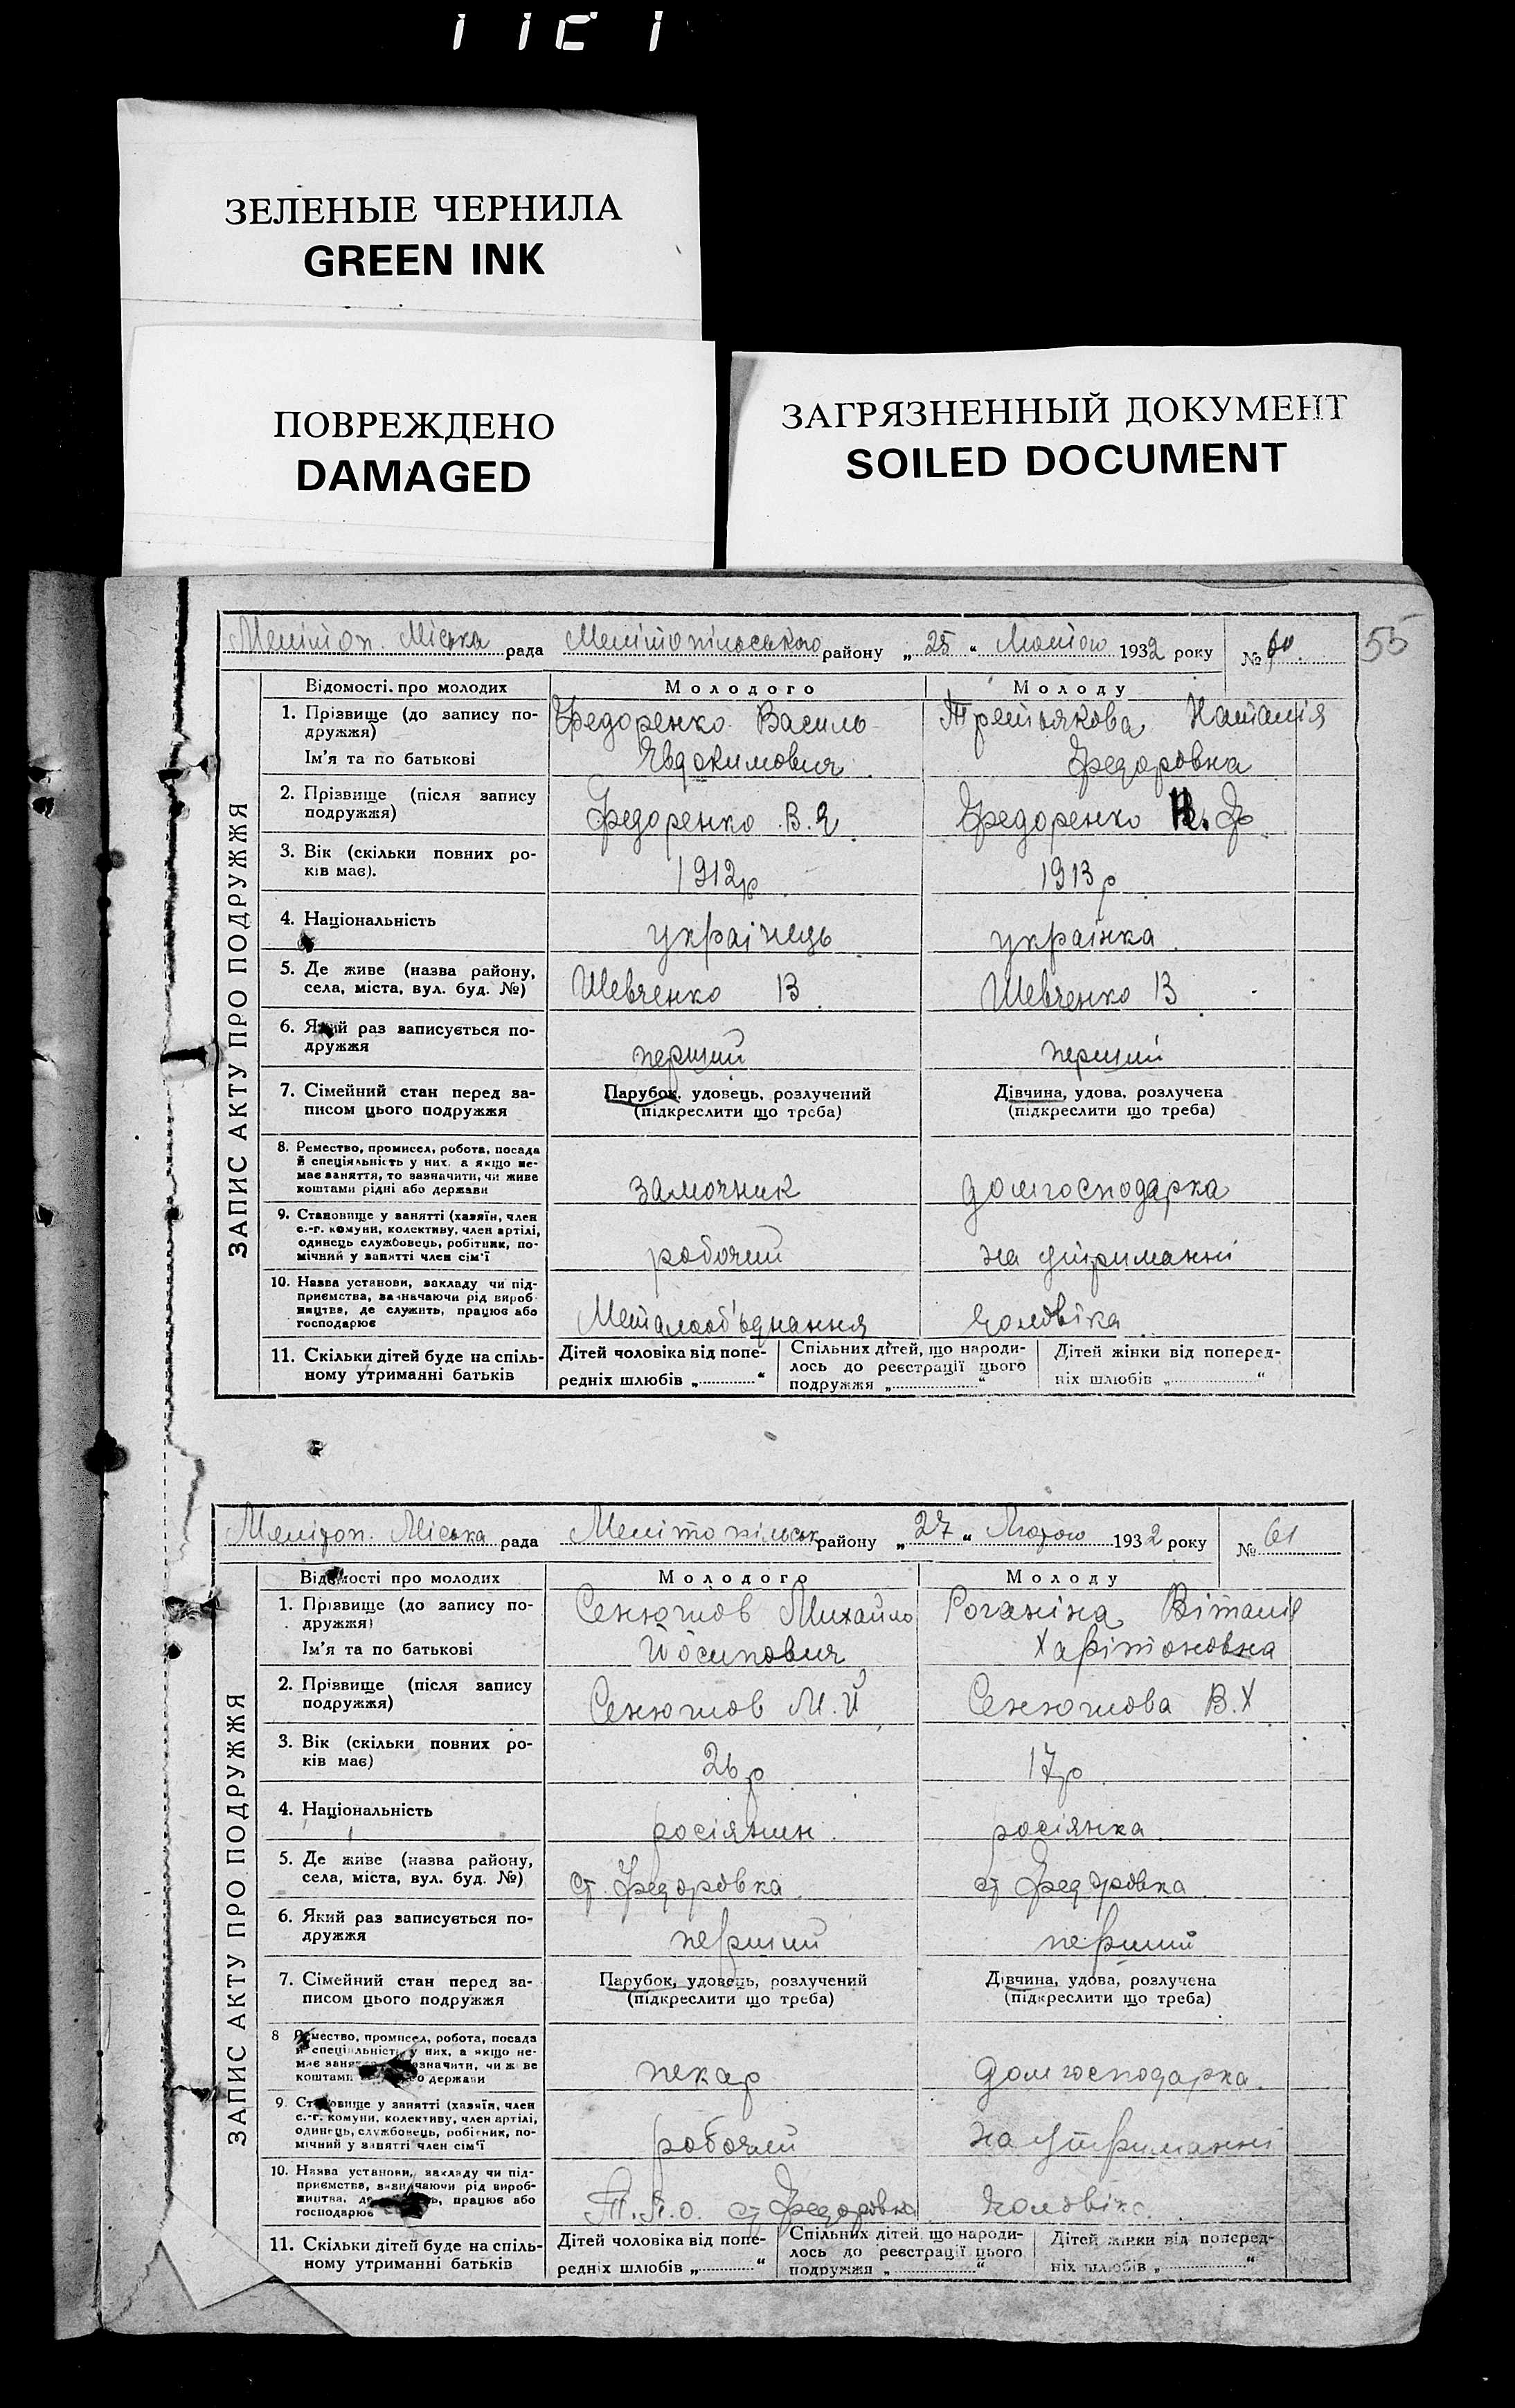 ЗЕЛЕНЫЕ ЧЕРНИЛА
GREEN INK
ПОВРЕЖДЕНО
DAMAGED
ЗАГРЯЗНЕННЫЙ ДОКУМЕНТ
SOILED DOCUMENT
55
Мелітоп. Міська рада Мелітопільського району „ 25 " Лютого 1932 року №
ЗАПИС АКТУ ПРО ПОДРУЖЖЯ
Відомості про молодих Молодого Молоду
1. Прізвище (до запису по- Федоренко Василь Третьякова Наталія
дружжя)
Ім'я та по батькові Явдокимович Федоровна
2. Прізвище (після запису
подружжя) Федоренко В. Я. Федоренко Н. Ф
3. Вік (скільки повних ро-
ків має). 1912р 1913р
4. Національність українець українка
5. Де живе (назва району,
села, міста, вул. буд. №) Шевченко 13 Шевченко 13
6. Який раз записується по-
дружжя перший перший
7. Сімейний стан перед за- Парубок, удовець, розлучений Дівчина, удова, розлучена
писом цього подружжя (підкреслити що треба) (підкреслити що треба)
8. Ремество, промисел, робота, посада
й спеціяльність у них, а якщо не-
має заняття, то зазначити, чи живе
коштами рідні або держави замочник домгосподарка
9. Становище у занятті (хазяїн, член
с.-г. комуни, колективу, член артілі,
одинець службовець, робітник, по-
мічний у занятті член сім'ї робочий на утриманні
10. Назва установи, закладу чи під-
приємства, зазначаючи рід вироб-
ництва, де служить, працює або
господарює Металооб'єднання чоловіка
11. Скільки дітей буде на спіль- Дітей чоловіка від попе- Спільних дітей, що народи- Дітей жінки від поперед-
ному утриманні батьків редніх шлюбів „ " лось до реєстрації цього ніх шлюбів „ "
подружжя „ "
Меліtоп. Міська рада Мелітопільськ району „ 27 " Лютого 1932 року № 61
ЗАПИС АКТУ ПРО ПОДРУЖЖЯ
Відомості про молодих Молодого Молоду
1. Прізвище (до запису по- Сенюшов Михайло Роганіна Віталія
дружжя)
Ім'я та по батькові Йосипович Харітоновна
2. Прізвище (після запису
подружжя) Сенюшов М. Й Сенюшова В. Х
3. Вік (скільки повних ро-
ків має) 26р 17р
4. Національність росіянин росіянка
5. Де живе (назва району,
села, міста, вул. буд. №) ст. Федоровка ст Федоровка
6. Який раз записується по-
дружжя перший перший
7. Сімейний стан перед за- Парубок, удовець, розлучений Дівчина, удова, розлучена
писом цього подружжя (підкреслити що треба) (підкреслити що треба)
8 Ремество, промисел, робота, посада
й спеціяльність у них, а якщо не-
має заняття зазначити, чи живе
коштами держави пекар домгосподарка
9. Становище у занятті (хазяїн, член
с.-г. комуни, колективу, член артілі,
одинець, службовець, робітник, по-
мічний у занятті член сім'ї робочий на утриманні
10. Назва установи, закладу чи під-
приємства, зазначаючи рід вироб-
ництва, працює або
господарює Т.П.О. ст Федоровка чоловіка
11. Скільки дітей буде на спіль- Дітей чоловіка від попе- Спільних дітей що народи- Дітей жінки від поперед-
ному утриманні батьків редніх шлюбів „ " лось до реєстрації цього ніх шлюбів „ "
подружжя „ "